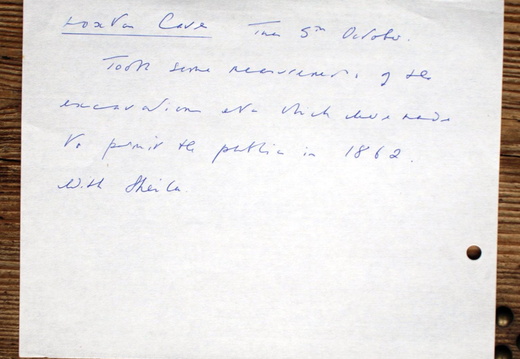 Loxton Cave Tues 5th October.
Took some measurements of the
excavations etc which were made
to permit the public in 1862.
With Sheila.